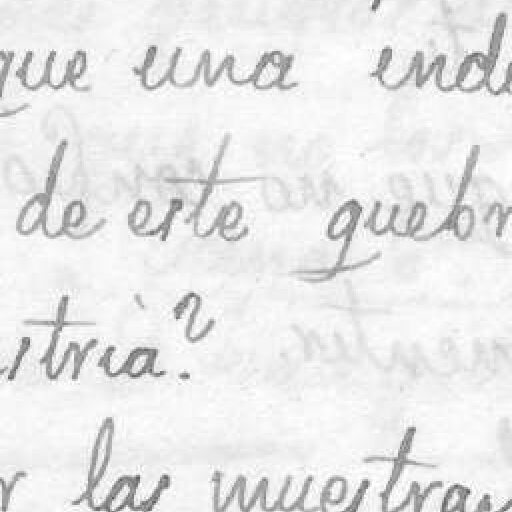 que una inde
de este quebr
stria?
r las muestras